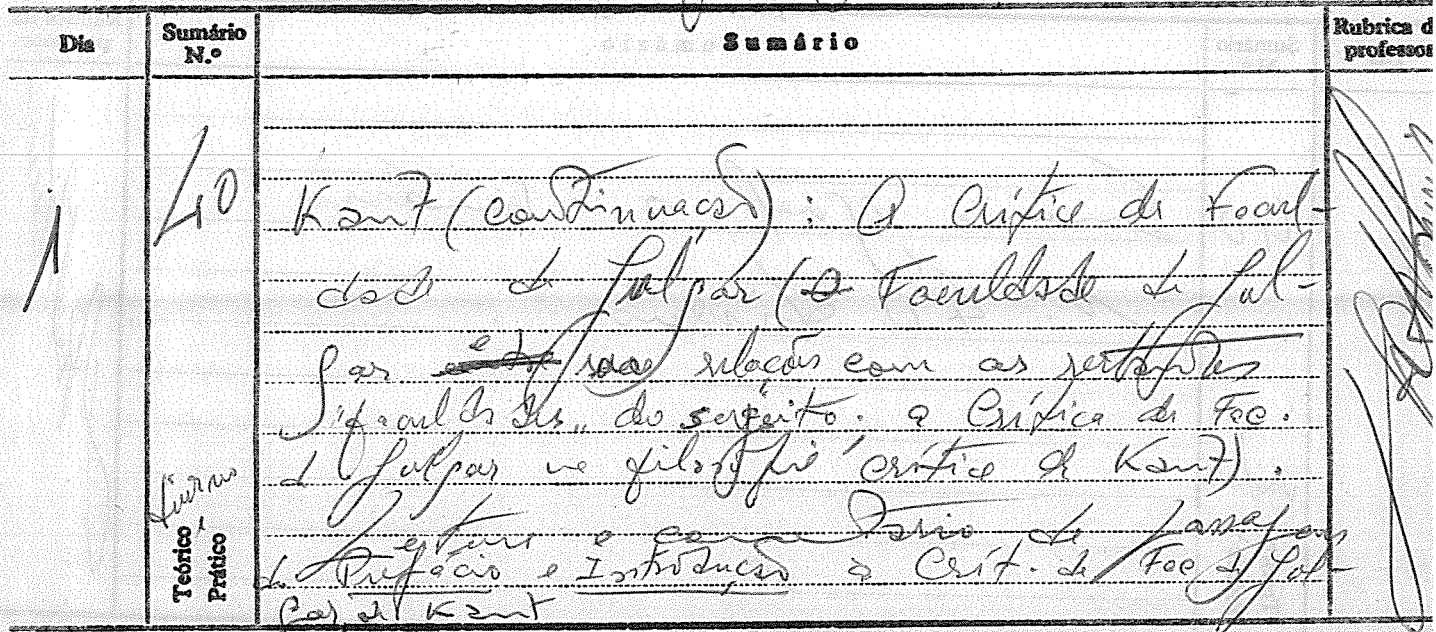 Dia
Sumário N.º
Sumário
Rubrica d
professor
1
40
Kant (continuação): A Crítica da Facul-
dade de Julgar (a Faculdade de Jul-
gar e sua relações com as restantes
"faculdades" do sujeito. a Crítica da Fac.
de Julgar na filosofia crítica de Kant).
Leitura e comentário de passagens
do Prefácio e Introdução à Crít. da Fac de Jul-
gar de Kant
diurno
Teórico e
Prático